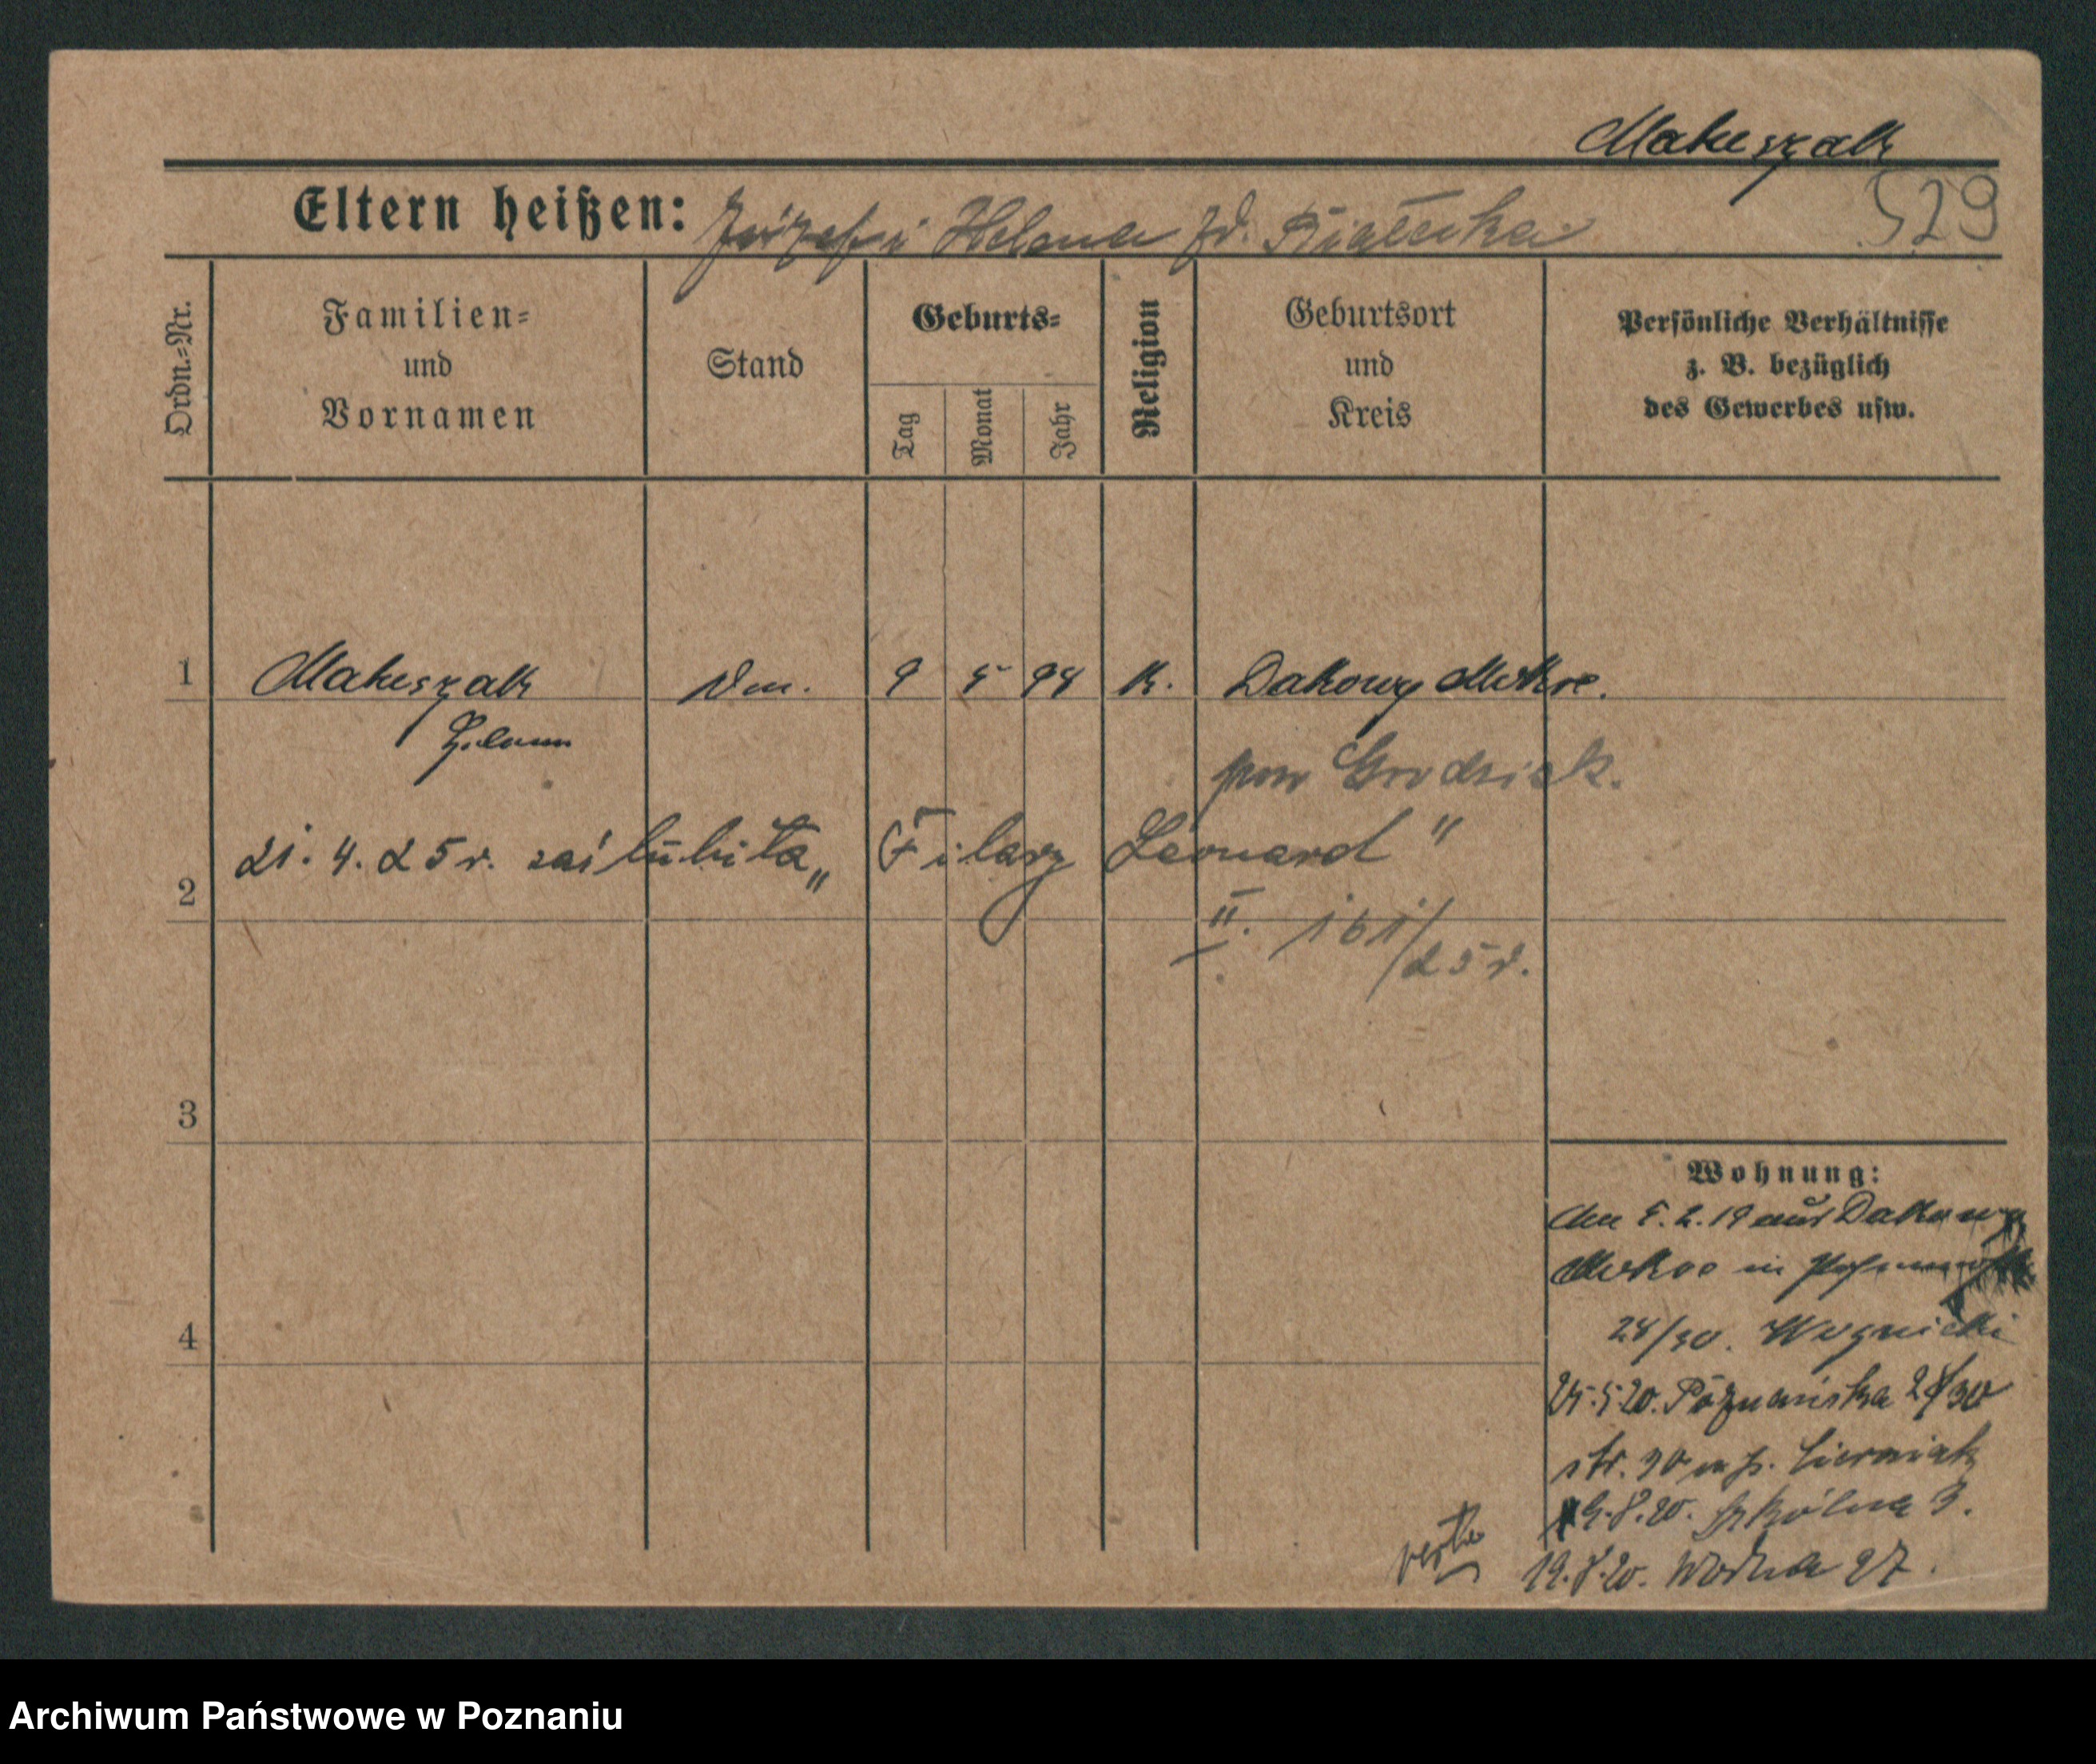 Makeszak
Eltern heißen: Józef i Helena zd. Białecka
529
Ordn.=Nr.
Familien=
und
Vornamen
Stand
Geburts=
Tag
Monat
Jahr
Religion
Geburtsort
und
Kreis
Persönliche Verhältnisse
z. B. bezüglich
des Gewerbes usw.
1 Makeszak 9 5 98 K. Dakowy Mokre.
pow Grodzisk.
2 21. 4. 25 r. zaślubiła „Filarz Leonard"
II. 161/25 r.
3
4
Wohnung:
den 5. 2. 19 aus Dakowy
Mokre in
24/30. Woznicki
25.5.20. Poznańska 24/30
str. 30 u p. Cierniak
19.8.20. Szkólna 3.
19.8.20. Wodna 27.
verte
Archiwum Państwowe w Poznaniu